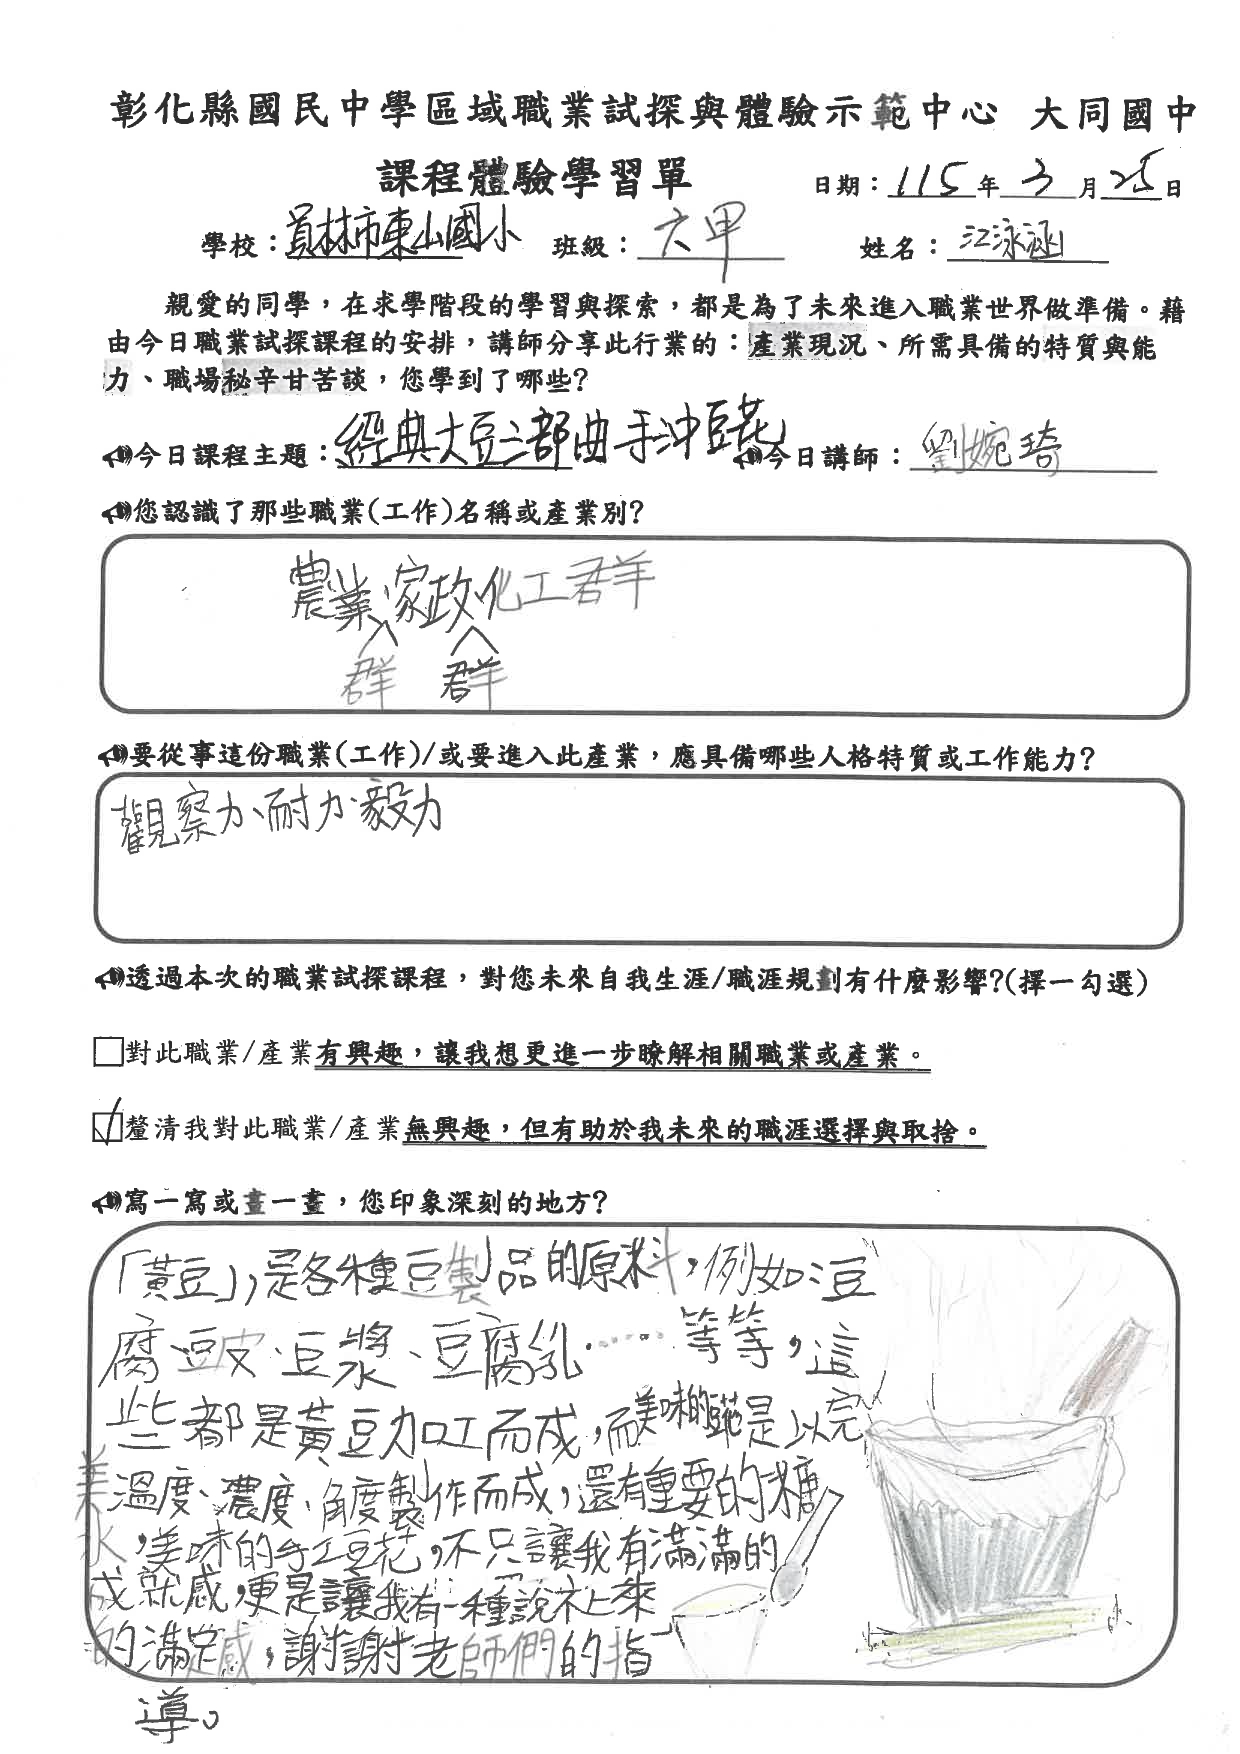 彰化縣國民中學區域職業試探與體驗示範中心 大同國中
課程體驗學習單
日期：115年3月25日
學校：員林市東山國小 班級：六甲 姓名：江泳涵
親愛的同學，在求學階段的學習與探索，都是為了未來進入職業世界做準備。藉
由今日職業試探課程的安排，講師分享此行業的：產業現況、所需具備的特質與能
力、職場秘辛甘苦談，您學到了哪些？
今日課程主題：經典大豆三部曲手沖豆花 今日講師：劉婉琦
您認識了那些職業(工作)名稱或產業別？
農業、家政化工群
群 群
要從事這份職業(工作)/或要進入此產業，應具備哪些人格特質或工作能力？
觀察力、耐力、毅力
透過本次的職業試探課程，對您未來自我生涯/職涯規劃有什麼影響？(擇一勾選)
□對此職業/產業有興趣，讓我想更進一步瞭解相關職業或產業。
☑釐清我對此職業/產業無興趣，但有助於我未來的職涯選擇與取捨。
寫一寫或畫一畫，您印象深刻的地方？
「黃豆」，是各種豆製品的原料，例如：豆
腐、豆皮、豆漿、豆腐乳……等等，這
些都是黃豆加工而成，而美味的豆花是以完
美溫度、濃度、角度製作而成，還有重要的糖
水，美味的手工豆花，不只讓我有滿滿的
成就感，更是讓我有一種說不上來
的滿足感，謝謝老師們的指
導。